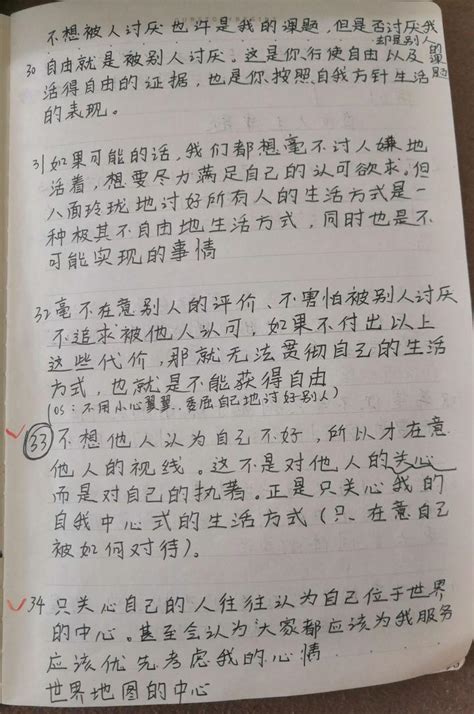 不想被人讨厌也许是我的课题，但是否讨厌我
却是别人的课题
30 自由就是被别人讨厌。这是你行使自由以及
活得自由的证据，也是你按照自我方针生活
的表现。
31 如果可能的话，我们都想毫不讨人嫌地
活着，想要尽力满足自己的认可欲求。但
八面玲珑地讨好所有人的生活方式是一
种极其不自由地生活方式，同时也是不
可能实现的事情
32 毫不在意别人的评价、不害怕被别人讨厌
不追求被他人认可，如果不付出以上
这些代价，那就无法贯彻自己的生活
方式，也就是不能获得自由
(OS：不用小心翼翼、委屈自己地讨好别人)
33 不想他人认为自己不好，所以才在意
他人的视线。这不是对他人的关心
而是对自己的执著。正是只关心我的
自我中心式的生活方式（只、在意自己
被如何对待）。
34 只关心自己的人往往认为自己位于世界
的中心。甚至会认为大家都应该为我服务
应该优先考虑我的心情
世界地图的中心